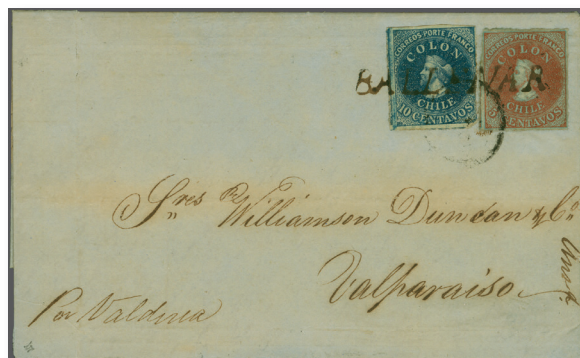 CORREOS PORTE FRANCO
COLON
CHILE
10 CENTAVOS
CORREOS PORTE FRANCO
COLON
CHILE
CENTAVOS
BALLENAR
Sres Williamson Duncan y Co
Valparaiso
Por Valdivia